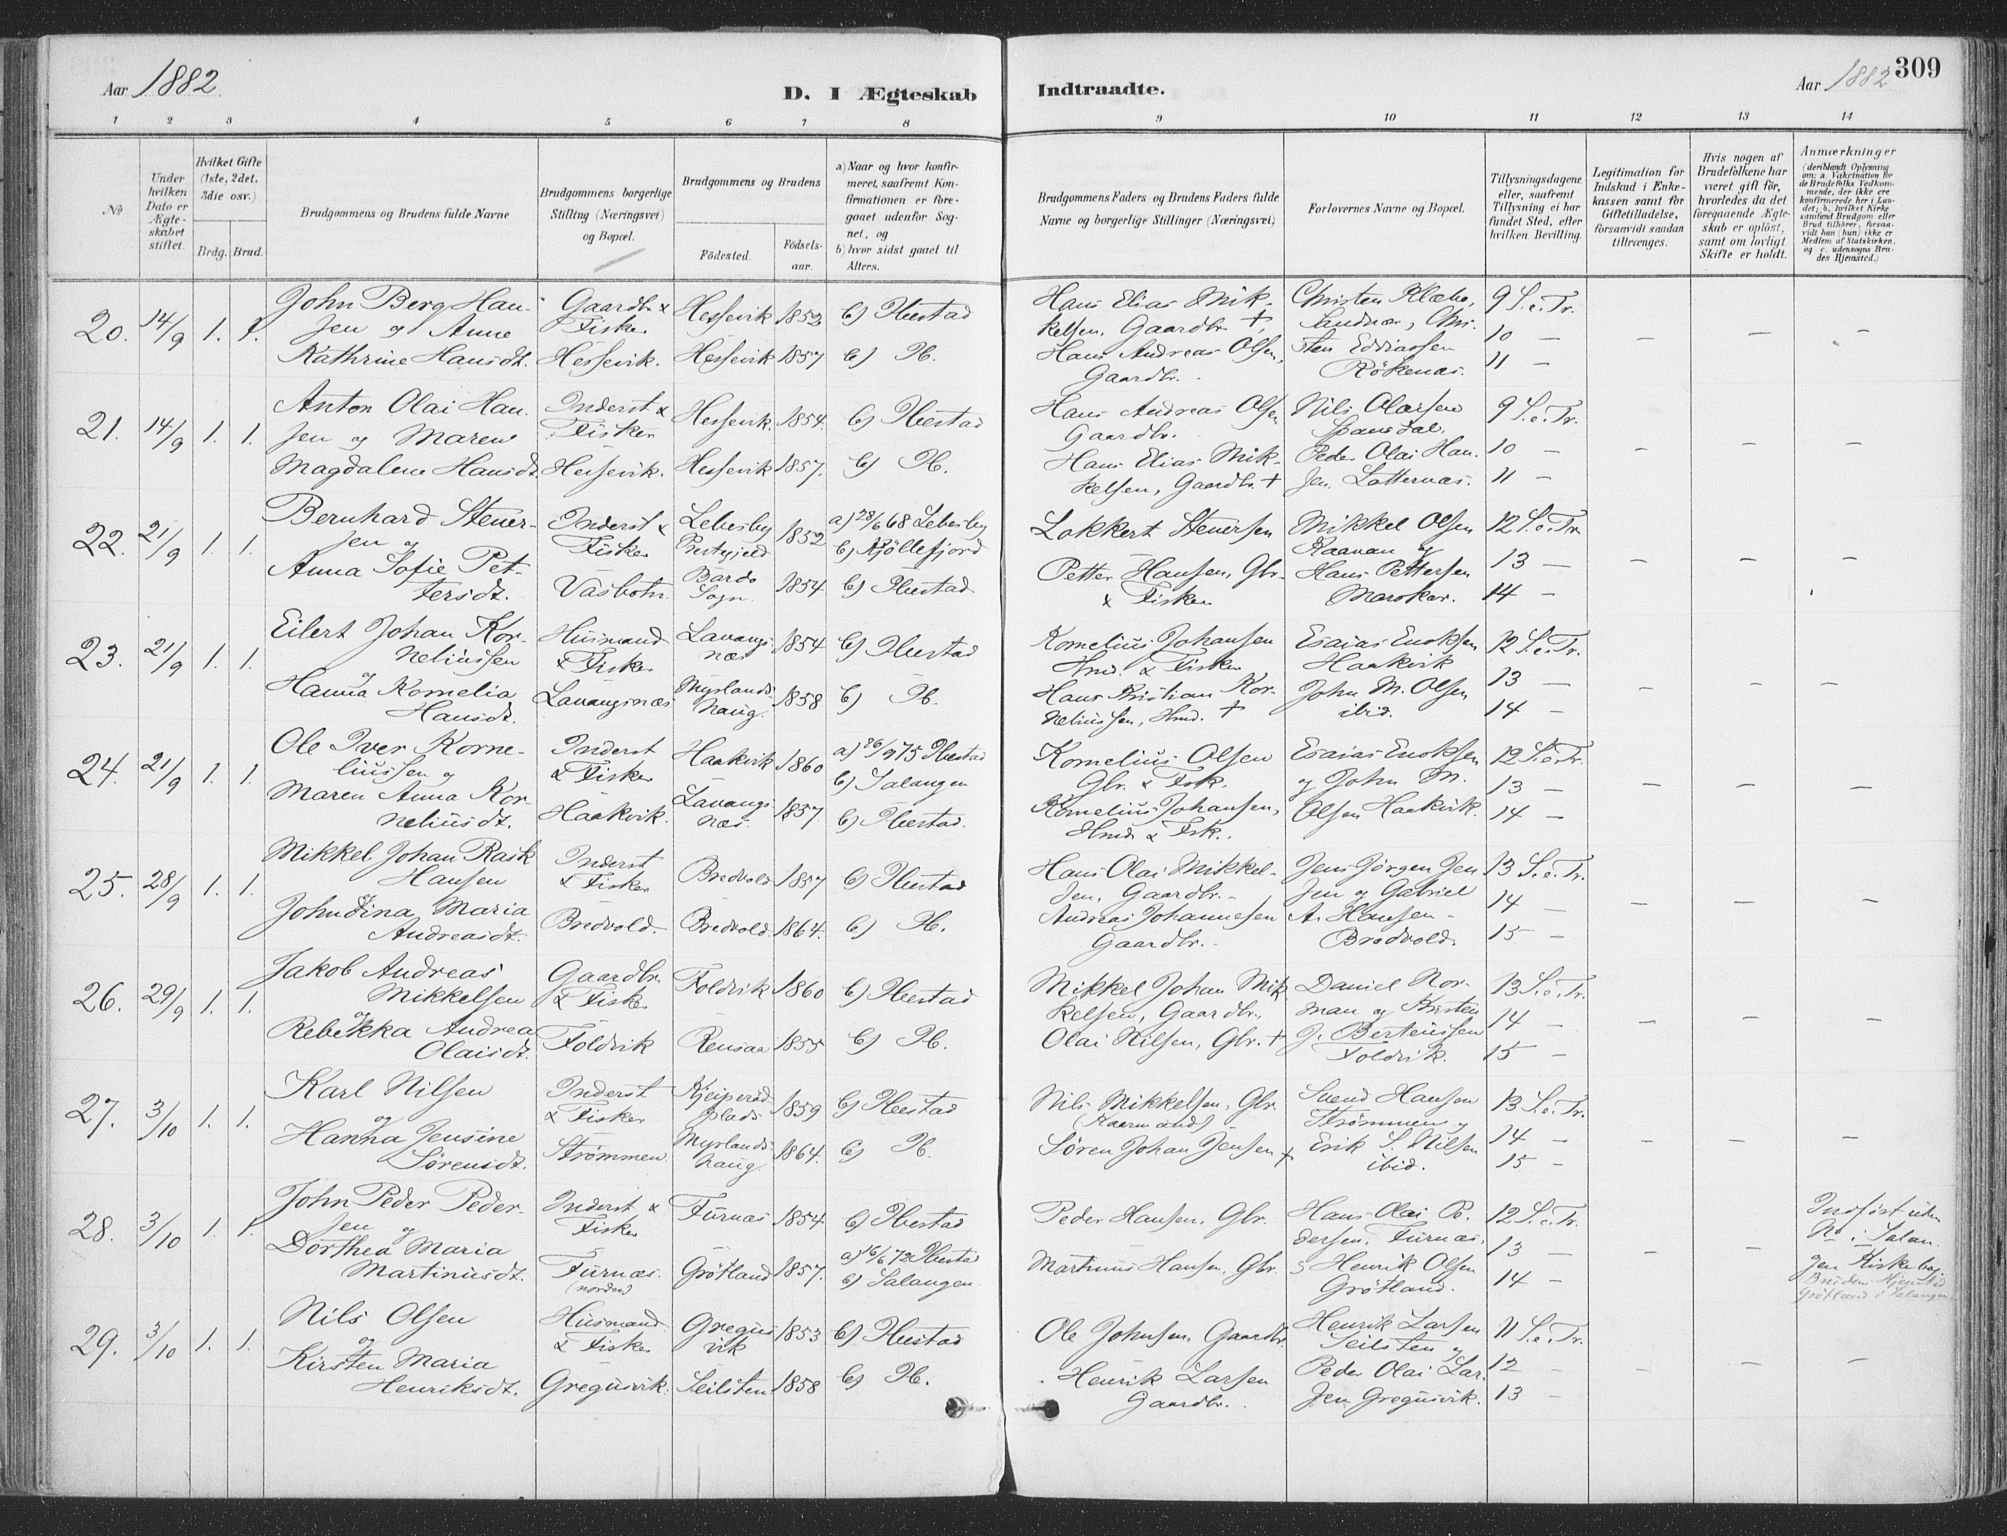 Aar 1882.
D. I Ægteskab
Indtraadte.
Aar 1882 309
1 2 3 4 5 6 7 8
9 10 11 12 13 14
No
Under hvilken Dato er Ægteskabet stiftet.
Hvilket Gifte (1ste, 2det, 3die osv.)
Brdg. Brud.
Brudgommens og Brudens fulde Navne
Brudgommens borgerlige Stilling (Næringsvei) og Bopæl.
Brudgommens og Brudens
Fødested.
Fødselsaar.
a) Naar og hvor konfirmeret, saafremt Konfirmationen er foregaaet udenfor Sognet, og
b) hvor sidst gaaet til Alters.
Brudgommens Faders og Brudens Faders fulde Navne og borgerlige Stillinger (Næringsvei)
Forlovernes Navne og Bopæl.
Tillysningsdagene eller, saafremt Tillysning ei har fundet Sted, efter hvilken Bevilling.
Legitimation for Indskud i Enkekassen samt for Giftetilladelse, forsaavidt saadan tiltrænges.
Hvis nogen af Brudefolkene har været gift før, hvorledes da det foregaaende Ægteskab er opløst, samt om lovligt Skifte er holdt.
Anmærkninger
(deriblandt Oplysning om: a. Vakcination for de Brudefolks Vedkommende, der ikke ere konfirmerede her i Landet; b. hvilket Kirkesamfund Brudgom eller Brud tilhører, forsaavidt han (hun) ikke er Medlem af Statskirken, og c. udensogns Brudes Hjemsted.)
20. 14/9 1. 1. John Berg Han- Gaardbr & Hessevik 1852 b) Ibestad Hans Elias Mik- Christen Klæbo, 9 S. e. Tr.
sen og Anne Fisker kelsen, Gaardbr †, Sandnæs, Chri- 10 — — — —
Kathrine Hansdt. Hessevik. Hessevik 1857 b) Ib. Hans Andreas Olsen, sten Eddiassen 11 —
Gaardbr. Rökenæs.
21. 14/9 1. 1. Anton Olai Han- Inderst & Hessevik. 1854. b) Ibestad Hans Andreas Olsen Nils Olaisen 9 S. e. Tr.
sen og Maren Fisker Gaardbr. Spansdal. — — —
Magdalene Hansdt. Hessevik. Hessevik 1857. b) Ib. Hans Elias Mik- Peder Olai Han- 10 —
kelsen, Gaardbr. † sen, Lotternæs. 11 —
22. 21/9 1. 1. Bernhard Stener- Inderst & Lebesby 1852 a) 28/6 68 Lebesby Lokkert Stenersen Mikkel Olsen 12 S. e. Tr.
sen og Fisker Prstgjeld b) Kjøllefjord Raavan og 13 — — — —
Anna Sofie Pet- Vasbotn. Bardo 1854 b) Ibestad Petter Hansen, Gbr. Hans Pettersen
tersdt. Sogn. & Fisker 14 —
23. 21/9 1. 1. Eilert Johan Kor- Husmand Lavangs- 1854 b) Ibestad Kornelius Johansen Esaias Enoksen 12 S. e. Tr.
neliussen & Fisker næs Hmd. & Fisker Haakvik 13 — — — —
og Hanna Kornelia Lavangsnæs Myrlands- 1858 b) Ib. Hans Kristian Kor- John M. Olsen 14 —
Hansdt. haug. neliussen, Hmd. † ibid.
24. 21/9 1. 1. Ole Iver Korne- Inderst Haakvik 1860 Ibestad Kornelius Olsen Esaias Enoksen 12 S. e. Tr.
liussen og & Fisker b) Salangen Gbr. & Fisk. og John M. 13 — — — —
Maren Anna Kor- Haakvik. Lavangs- 1857. b) Ibestad. Kornelius Johansen, Olsen Haakvik. 14 —
neliusdt. næs. Hmd & Fisk.
25. 28/9 1. 1. Mikkel Johan Rask Inderst Bredvold 1857 b) Ibestad Hans Olai Mikkel- Jens Jørgen Jen 13 S. e. Tr.
Hansen & Fisker sen, Gaardbr. sen og Gabriel 14 — — — —
Johndina Maria Bredvold. Bredvold. 1864. b) Ib. Andreas Johannesen A. Hansen
Andreasdt. Gaardbr. Bredvold. 15 —
26. 29/9 1. 1. Jakob Andreas Gaardbr. Foldvik 1860 b) Ibestad Mikkel Johan Mik Daniel Nor- 13 S. e. Tr.
Mikkelsen & Fisk. kelsen, Gaardbr. man og Kristen 14 — — — —
og Rebekka Andrea Foldvik Rensaa 1855 b) Ib. Olai Nilsen, Gbr. † J. Berteussen
Olaisdt. Foldvik. 15 —
27. 3/10 1. 1. Karl Nilsen Inderst Kjeiperød 1859 b) Ibestad Nils Mikkelsen, Gbr. Svend Hansen 13 S. e. Tr.
og & Fisker plads Strømmen og 14 — — — —
Hanna Jensine Strømmen Myrlands- 1864. b) Ib. Søren Johan Jensen † Erik S. Nilsen
Sørensdt. haug. ibid. 15 —
28. 3/10 1. 1. John Peder Peder- Inderst & Furnæs 1854 b) Ibestad Peder Hansen, Gbr. Hans Olai P- 12 S. e. Tr. Indført uden
sen og Fisker dersen, Furnæs, 13 — — — No i Salan-
Dorthea Maria Furnæs. Grøtland 1857. a) 16/6 72 Ibestad Martinus Hansen, Gbr. Henrik Olsen 14 — gen Kirkebog
Martinusdt. (norden) b) Salangen. Grötland. Brudens Hjemsted
Grøtland i Salangen
29. 3/10 1. 1. Nils Olsen Husmand Gregus- 1853 b) Ibestad Ole Johnsen, Gaardbr. Henrik Larsen 11 S. e. Tr.
og & Fisker vik Seilsten og 12 — — — —
Kirsten Maria Gregusvik. Seilsten 1858 b) Ib. Henrik Larsen Peder Olai Lar-
Henriksdt. Gaardbr. sen Gregusvik. 13 —